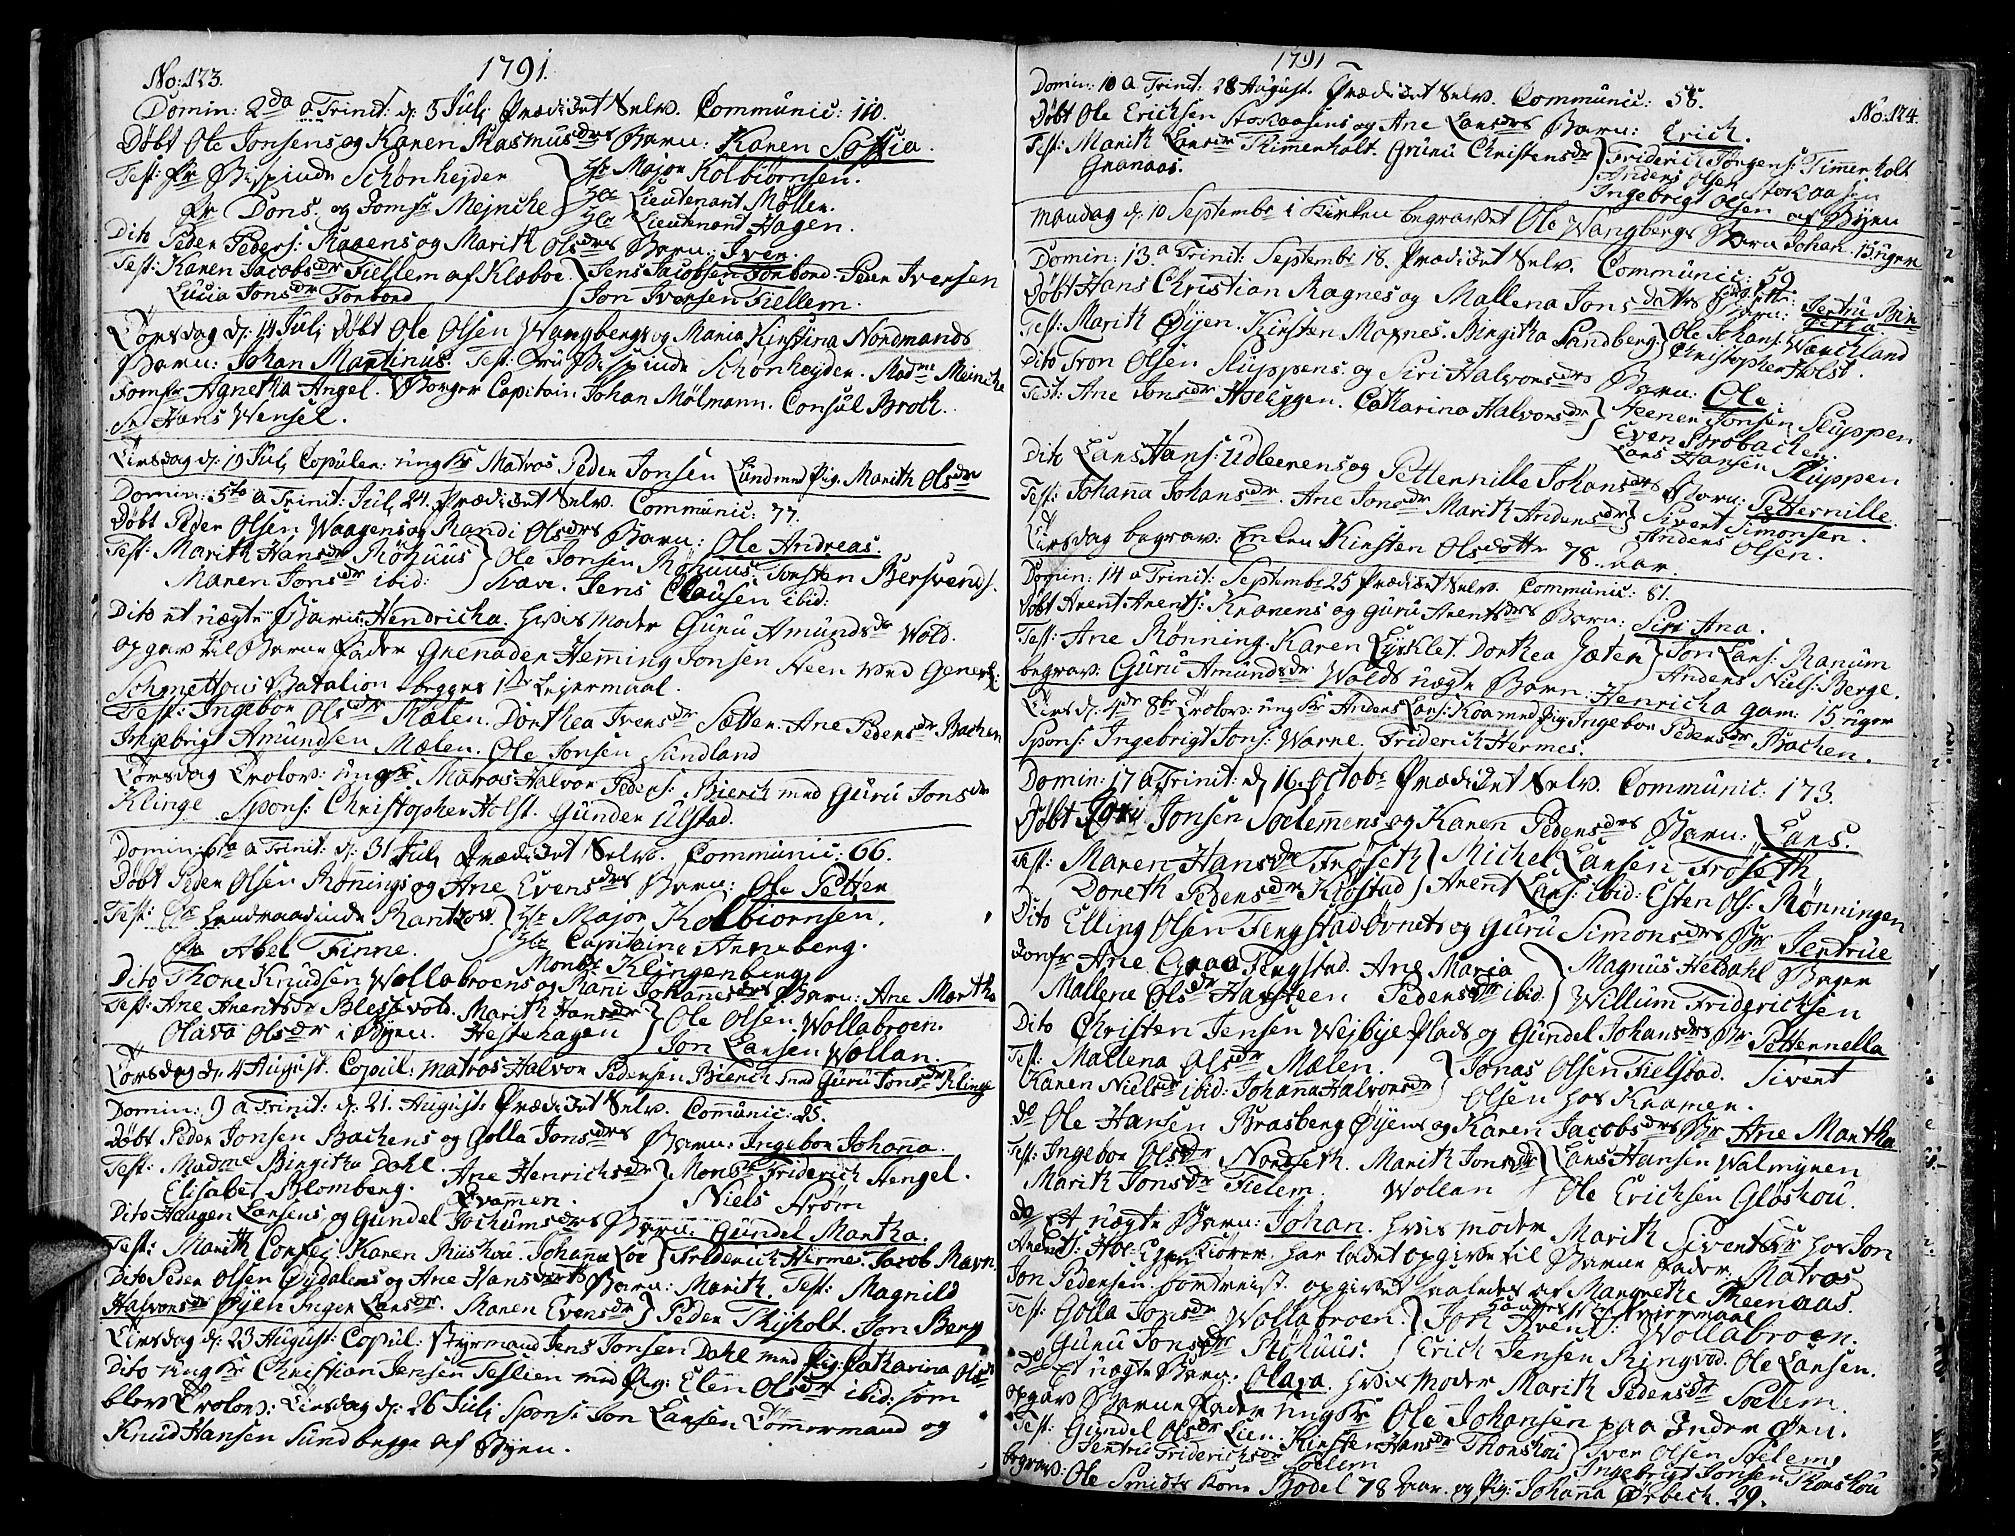 No: 123.
1791.
Domin: 2da a Trinit: d. 3 Julj Prædicket Selv. Communic: 110.
Døbt Ole Jonsens og Karen Rasmusdrs Barn: Karen Sophia.
Test: Fr Bispinde Schønheyder } Hr Major Kolbiørnsen.
Fr Dons. og Jomfr Meincke } Hr Lieutenant Møller.
Hr Lieutenant Hagen.
Dito Peder Peders: og Marith Olsdrs Barn: Iver.
Test: Karen Jacobsdr Fiellem af Klæboe. } Jens Jacobsen Forbord. Peder Iversen
Lucia Jonsdr Forbord } Jon Iversen Fiellem.
Torsdag d. 14 Julj døbt Ole Olsen Wangbergs og Maria Kirstina Nordmands
Barn: Johan Martinus. Test: Fru Bispinde Schønheyder. Madme Meincke
Jomfr Agnetha Angel. Borger Capitain Johan Mølmann. Consul Broch.
Sr Hans Wensel.
Tirsdag d: 19 Julj Copuler: ungkr Matros Peder Jonsen Lund med Pig: Marith Olsdr
Domin: 5to a Trinit: Julj 24. Prædicket Selv. Communic: 77.
Døbt Peder Olsen Waagens og Randi Olsdrs Barn: Ole Andreas.
Test: Marith Hansdr Røhuus } Ole Jonsen Røhuus. Torsten Bersvends.
Maren Jonsdr ibid: } Jens Clausen ibid:
Dito et uægte Barn: Hendricka. hvis Moder Guru Amundsdr Wold.
opgav til Barne Fader Grenader Hemming Jonsen Heen ved Generl:
Schmettous Batalion begges 1te Lejermaal.
Test: Ingebor Olsdr Mælen. Dorthea Iversdr Sætter. Ane Pedersdr Bachen
Ingebrigt Amundsen Mælen. Ole Jonsen Sundland
Torsdag Trolov: ungkr Matros Halvor Peders: Bierch med Guru Jonsdr
Klinge Spons: Christopher Holst. Gunder Ulstad.
Domin: 6ta a Trinit: d: 31 Julj Prædicket Selv. Communic: 66.
Døbt Peder Olsen Rønnings og Ane Evensdrs Barn: Ole Petter
Test: Fr Landraadinde Rantzow } Hr Major Kolbiørnsen.
Fr Abel Finne. } Hr Capitaine Anneberg.
Monsr Klingenberg
Dito Thore Knudsen Wollabroens og Rani Johannesdrs Barn: Ane Martha
Test: Ane Arentsdr Blesevold. Marith Hansdr } Ole Olsen Wollabroen.
Olava Olsdr i Byen. Hestehagen } Jon Larsen Wollan.
Torsdag d. 4 August. Copul: Matros Halvor Pedersen Bierch med Guru Jonsdr Klinge
Domin: 9 a Trinit: d: 21. August: Prædicket Selv. Communic: 25.
Døbt Peder Jonsen Bachens og Golla Jonsdrs Barn: Ingebor Johanna.
Test: Madme Birgitha Dahl. Ane Henrichsdr } Monsr Friderich Hengel.
Elisabet Blomberg. Kvammen. } Niels Strøm
Dito Haagen Larsens og Gundel Jochumsdrs Barn: Gundel Martha.
Test: Marith Karen Ruskou. Johanna Loe } Friderich Hermes. Jacob Mavn.
Dito Peder Olsen Øydalens og Ane Hansdatts Barn: Marith. Test: Magnild
Halvorsdr Øyen Inger Larsdr. Maren Evensdr } Peder Thisholt. Jon Berg
Tirsdag d: 23 August: Copul: Styrmand Jens Jonsen Dahl med Pig: Catharina Olsdr
Dito ungkr Christian Jensen Teslien med Pig: Elen Olsdr ibid: som
blev Trolov: Tirsdag d: 26 Julj Spons: Jon Larsen Tømmermand og
Knud Hansen Lund begge af Byen.
1791
No: 124.
Domin: 10 a Trinit: 28 August. Prædicket Selv. Communic: 58.
Døbt Ole Ericksen Storaasens og Ane Larsdrs Barn: Erick.
Test: Marith Larsdr Timmerholt. Guru Christensdr } Friderich Jørgens: Timmerholt
Granaas. } Anders Olsen Storaasen
Ingebrigt Olsen af Byen
Mandag d. 10 Septembr i Kirken begravet Ole Wangbergs Barn Johan. 15 uger
Domin: 13 a Trinit: Septembr 18. Prædicket Selv. Communic: 59
Døbt Hans Christian Ragnes og Mallena Jonsdatters Barn: Jertru Birgitta.
Test: Marith Øyen. Kirsten Moxnes. Birgitha Sandberg. } Ole Johans: Warchland
Christopher Holst.
Dito Tron Olsen Sluppens og Siri Halvorsdrs Barn: Ole.
Test: Ane Jonsdr Hoseggen. Catharina Halvorsdr } Steener Jonsen Sluppen
Even Strobachen.
Lars Hansen Sluppen
Dito Lars Hans: Udleerens og Petternille Johansdrs Barn: Petternille.
Test: Johanna Johansdr. Ane Jonsdr Marith Andersdr } Sivert Simonsen.
Anders Olsen.
Tirsdag begrav: Enken Kirsten Olsdotter 78. Aar.
Domin: 14 a Trinit: Septembr 25 Prædicket Selv. Communic: 81.
Døbt Arent Arents: Knarens og Guru Arentsdrs Barn: Siri Ana.
Test: Ane Rønning. Karen Lysklet. Dorthea Jæter } Jon Lars: Ranum
Anders Niels: Berge.
begrav: Guru Amundsdr Wolds uægte Barn: Henricha gam: 15 uger
Tirs d. 4de 8br Trolov: ungkr Anders Lars: Koa med Pig: Ingebor Pedersdr Bachen.
Spons: Ingebrigt Jons: Warne. Friderich Hermes.
Domin: 17 a Trinit: d. 16. Octobr Prædicket Selv. Communic. 173.
Døbt Jonsen Soelemmens og Karen Pedersdrs Barn: Lars.
Test: Maren Hansdr Frøseth } Michel Larsen Frøseth
Doreth Pedersdr Kløstad } Arent Lars: ibid: Esten Ols: Rønningen
Dito Elling Olsen Fengstadøvnets og Guru Simonsdrs Br Jertrue
Jomfr Ane Graa Fengstad. Ane Maria } Magnus Heldahl Borger
Mallene Olsdr Havsteen Pedersdr ibid. } Willum Friderichsen
Dito Christen Jensen Wejbye Plads og Gundel Johansdrs Br Petternella
Test: Mallena Olsdr Malen. } Jonas Olsen Fielstad. Sivert
Karen Nielsdr ibid: Johanna Halvorsdr } Olsen hos Kramer.
do Ole Hansen Brasberg Øyens og Karen Jacobsdrs Br Ane Martha
Test: Ingebor Olsdr Nordseth. Marith Jonsdr } Lars Hansen Walmyren
Marith Jonsdr Fielem. Wollan } Ole Ericksen Gløshou.
do Et uægte Barn: Johan. hvis Moder Marith Sivertsdr hos Jon
Arents: har ladet opgive til Barne Fader Matros
Jon Pedersen. opgivet saaledes af Margrethe Steenaas.
Begges Lejermaal
Test: Golla Jonsdr Wollabroen. } Jon Wollabroen.
Guru Jonsdr Røhuus. } Erich Jensen Ringvod. Ole Larsen.
do Et uægte Barn. Olava. hvis Moder Marith Pedersdr Soelem.
opgav Barne Fader ungkr Ole Johansen paa Inder Øen.
Test: Gundel Olsdr Lien. Kirsten Hansdr Thonshou } Iver Olsen Soelem
Jertru Friderichsdr Soelem } Ingebrigt Jonsen Thonshou
begrav: Ole Smidts Kone Bodel 78 Aar. og Pig: Johanna Ørbech. 29.